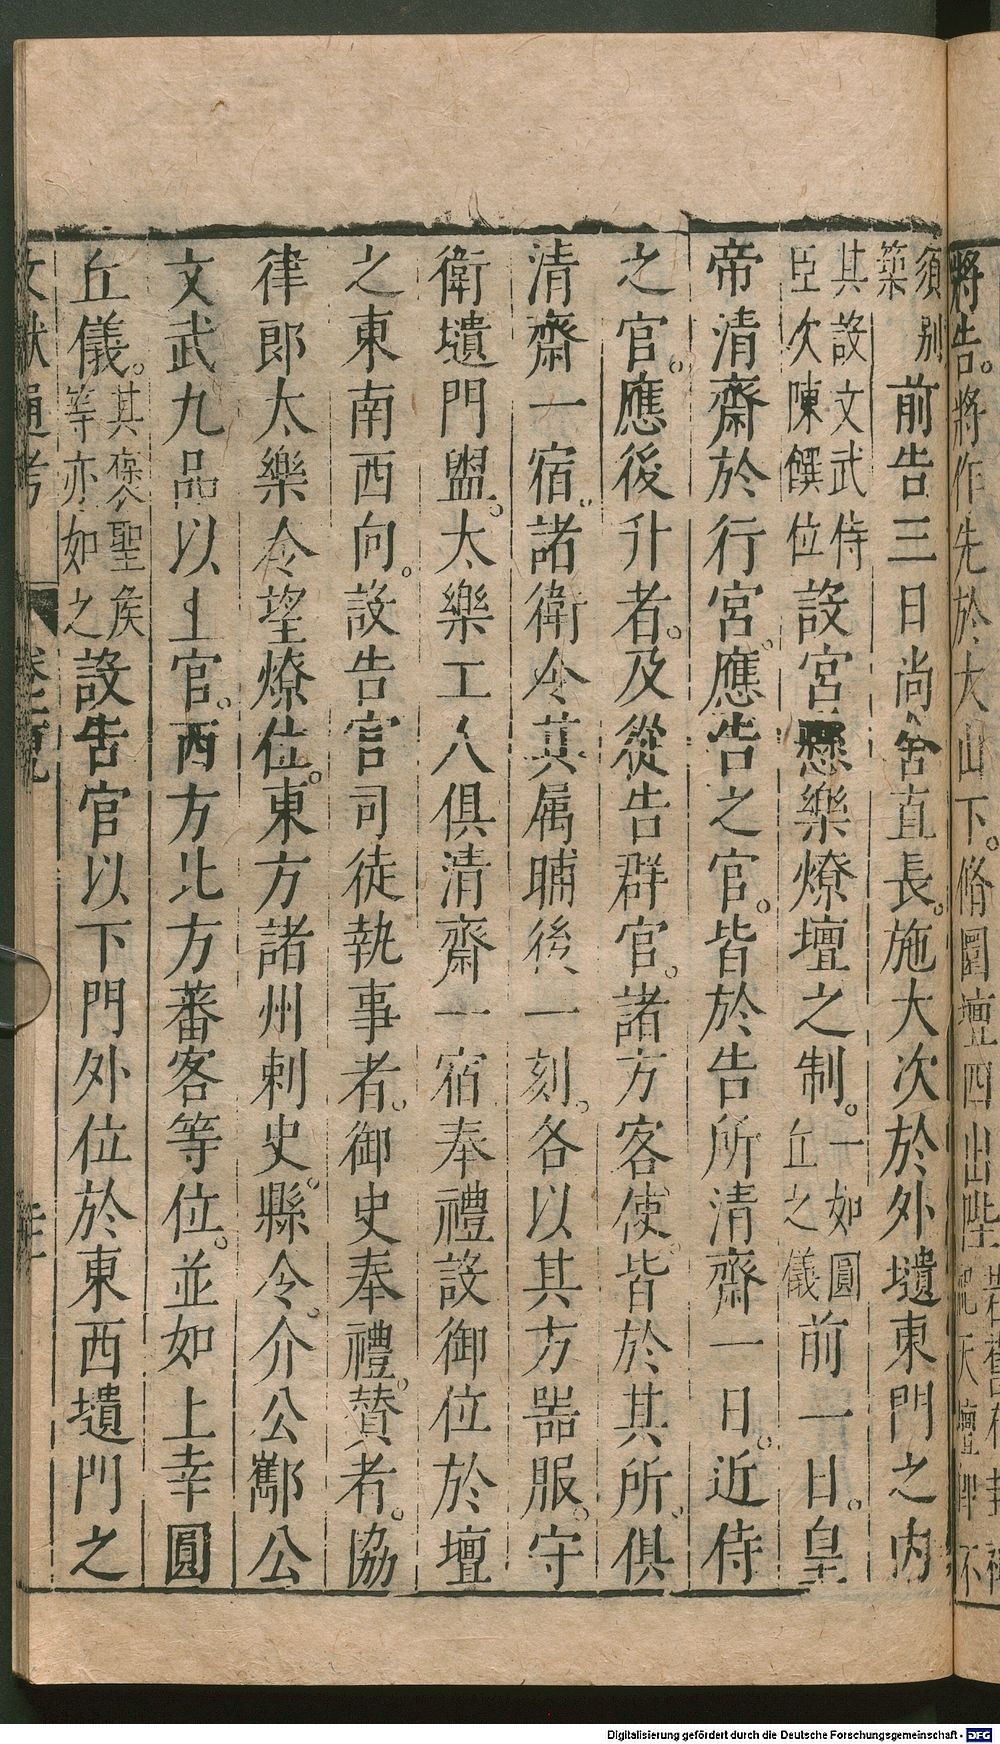 將告。將作先於大山下。脩圜壇四出陛
須别築前告三日尚舍直長。施大次於外壝東門之内
其設文武侍臣次陳饌位設宮懸樂燎壇之制。一如圓丘之儀前一日。皇
帝清齋於行宮。應告之官。皆於告所清齋一日。近侍
之官。應後升者。及從告群官。諸方客使。皆於其所。俱
清齋一宿。諸衛令其属晡後一刻。各以其方噐服。守
衛壝門盥。太樂工人俱清齋一宿奉禮設御位於壇
之東南西向。設告官司徒執事者。御史奉禮。賛者。協
律郎太樂令望燎位。東方諸州刺史。縣令。介公酅公
文武九品以上官。西方北方蕃客等位。並如上幸圓
丘儀。其襃聖矦等亦如之設告官以下門外位於東西壝門之
文獻通考
Digitalisierung gefördert durch die Deutsche Forschungsgemeinschaft - DFG